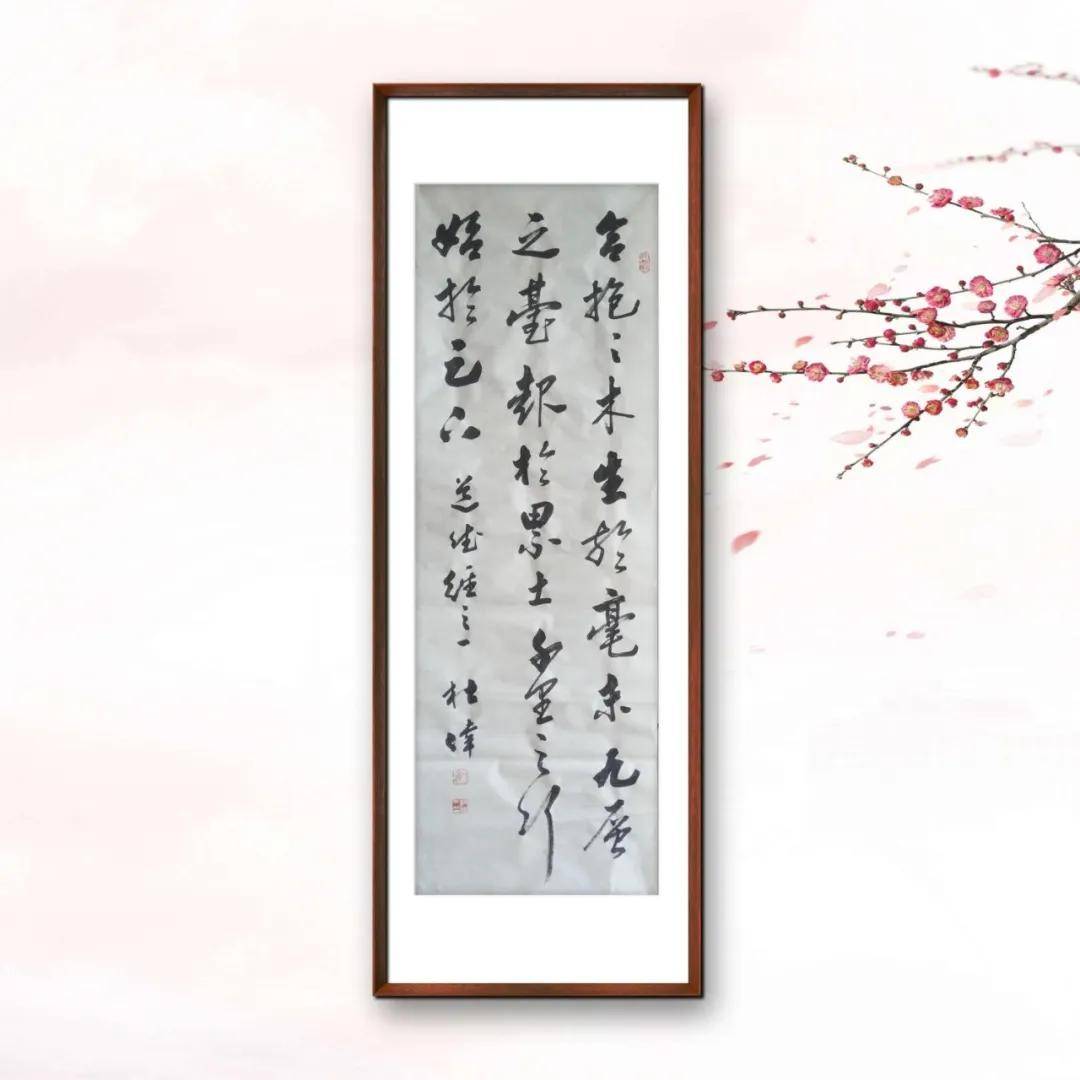 合抱之木生於毫末九層
之臺起於累土千里之行
始於足下 道德經之一 杜